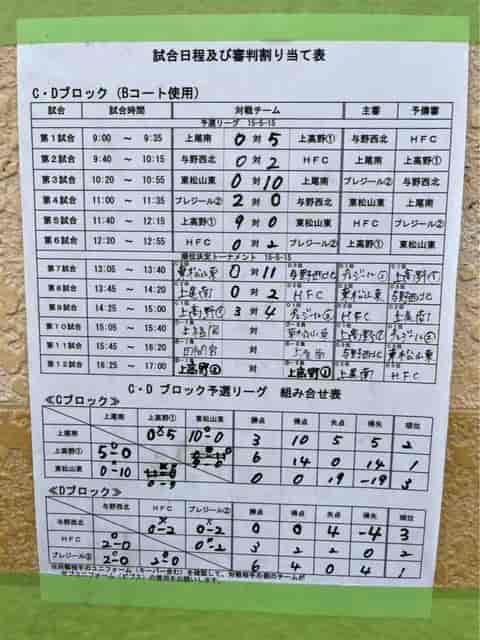 試合日程及び審判割り当て表
C・Dブロック (Bコート使用)
試合 試合時間 対戦チーム 主審 予備審
予選リーグ 15-5-15
第1試合 9:00 ～ 9:35 上尾南 0 対 5 上高野① 与野西北 HFC
第2試合 9:40 ～ 10:15 与野西北 0 対 2 HFC 上尾南 上高野①
第3試合 10:20 ～ 10:55 東松山東 0 対 10 上尾南 プレジール② 与野西北
第4試合 11:00 ～ 11:35 プレジール② 2 対 0 与野西北 東松山東 上尾南
第5試合 11:40 ～ 12:15 上高野① 9 対 0 東松山東 HFC プレジール②
第6試合 12:20 ～ 12:55 HFC 0 対 2 プレジール② 上高野① 東松山東
順位決定トーナメント 15-5-15
第7試合 13:05 ～ 13:40 東松山東 0 対 11 与野西北 プレジール② 上高野①
第8試合 13:45 ～ 14:20 上尾南 0 対 2 HFC 東松山東 与野西北
第9試合 14:25 ～ 15:00 上高野① 3 対 4 プレジール② HFC 上尾南
第10試合 15:05 ～ 15:40 対 東松山東 上高野① プレジール②
第11試合 15:45 ～ 16:20 対 上尾南 与野西北 東松山東
第12試合 16:25 ～ 17:00 上高野 対 上高野 上尾南 HFC
C・D ブロック予選リーグ 組み合せ表
≪Cブロック≫
上尾南 上高野① 東松山東 勝点 得点 失点 得失 順位
上尾南 0×5 10-0 3 10 5 5 2
上高野① 5-0 6 14 0 14 1
東松山東 0-10 0-9 0 0 19 -19 3
≪Dブロック≫
与野西北 HFC プレジール② 勝点 得点 失点 得失 順位
与野西北 0-2 0-2 0 0 4 -4 3
HFC 2-0 0-2 3 2 2 0 2
プレジール② 2-0 2-0 6 4 0 4 1